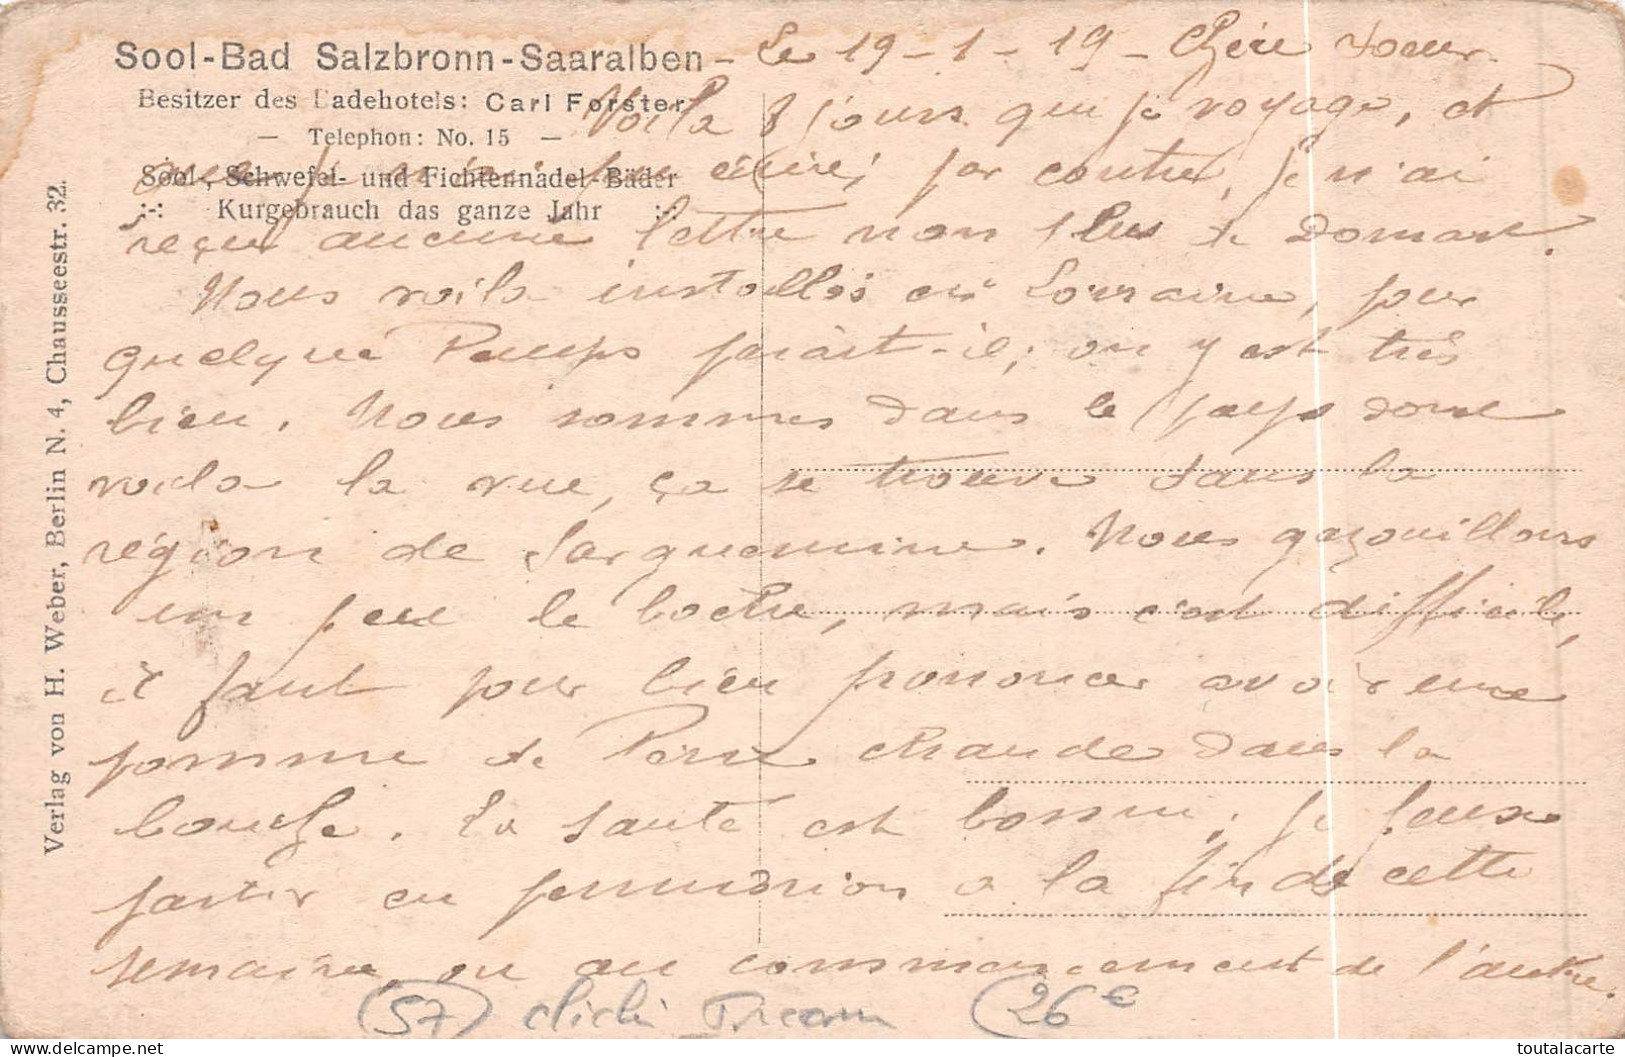 Sool-Bad Salzbronn-Saaralben - Le 19-1-19- Chère soeur
Besitzer des Badehotels: Carl Forster
Voilà 8 jours que je voyage, et
— Telephon: No. 15 —
que je n'ai pu écrire; par contre, je n'ai
Sool-, Schwefel- und Fichtennadel-Bäder
:-: Kurgebrauch das ganze Jahr :-:
reçu aucune lettre non plus de Domart.
Nous voilà installés en Lorraine, pour
quelque temps paraît-il; on y est très
bien. Nous sommes dans le pays dont
voilà la vue, ça se trouve dans la
région de Sarguemine. Nous gazouillons
un peu le boche, mais c'est difficile,
il faut pour bien prononcer avoir une
pomme de Terre chaude dans la
bouche. La santé est bonne; je peux
partir en permission à la fin de cette
semaine, ou au commencement de l'autre.
Verlag von H. Weber, Berlin N. 4, Chausseestr. 32.
(57) cliché (26€
toutalacarte